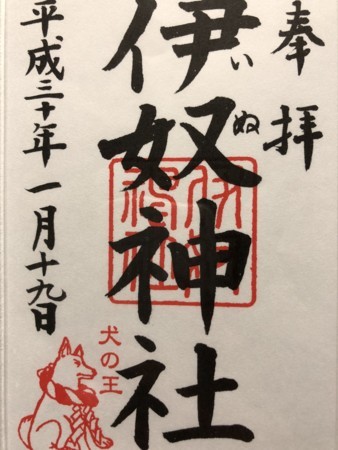 奉拝
伊奴神社
いぬ
平成三十年一月十九日
犬の王